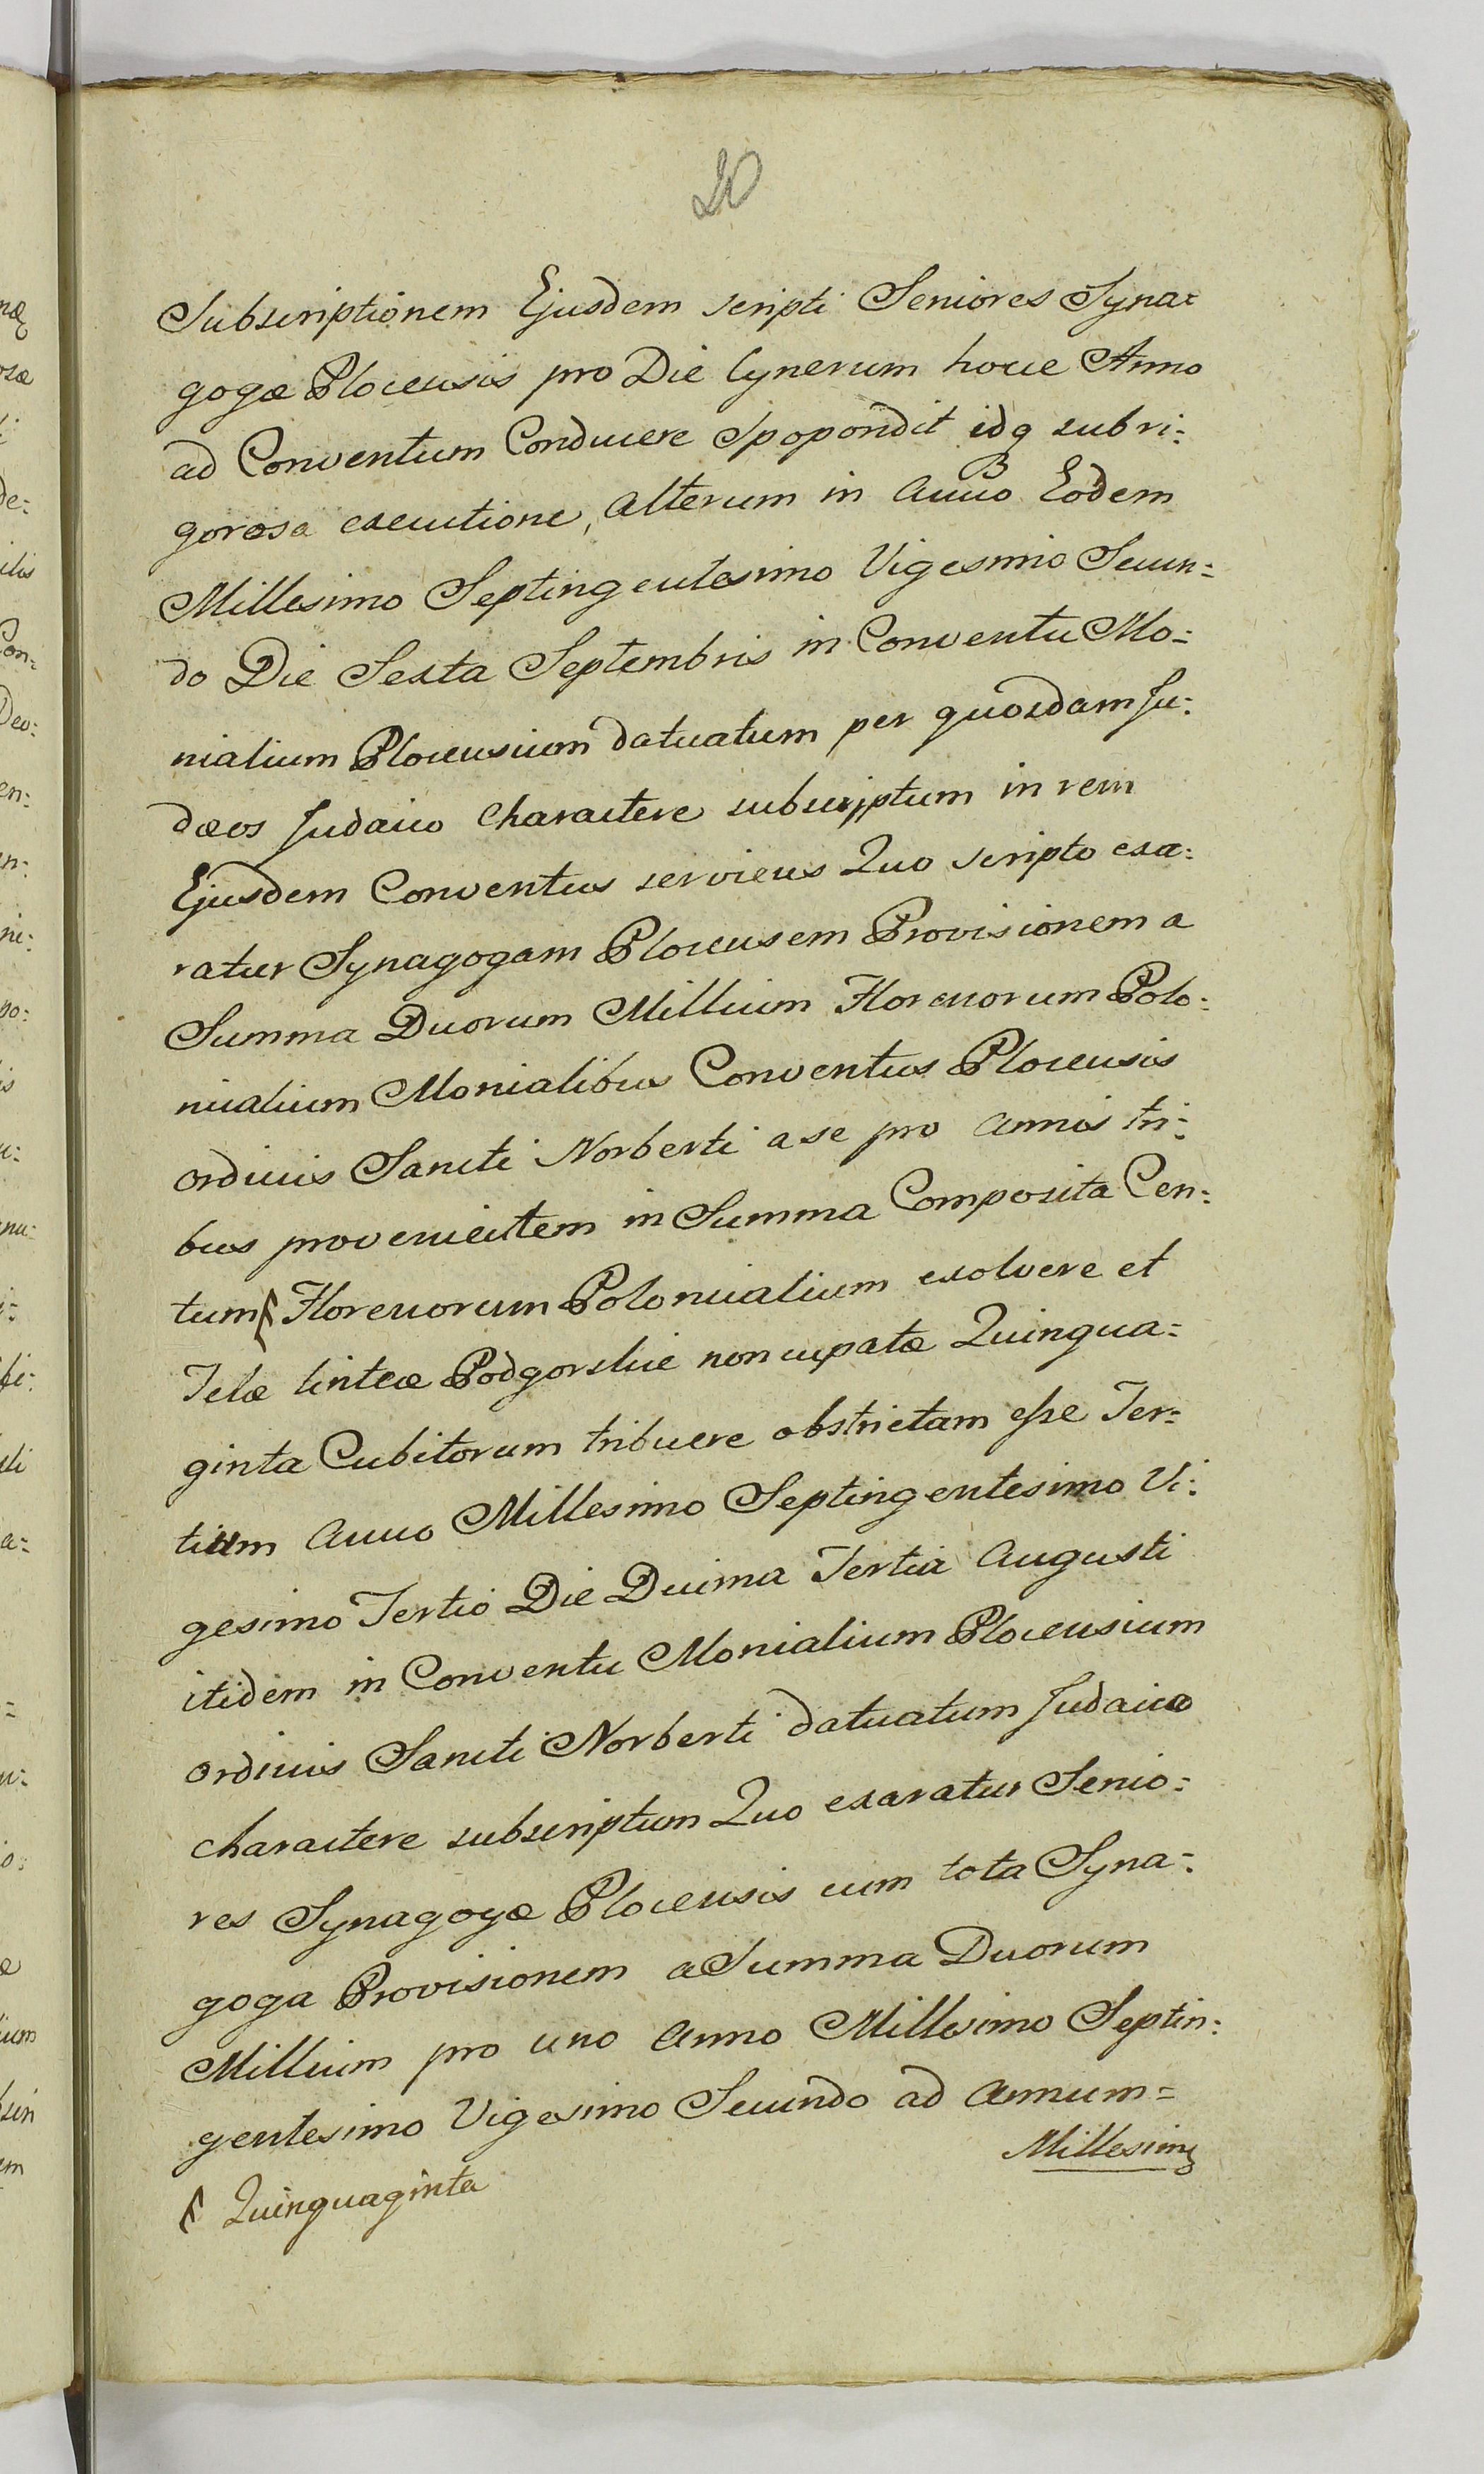 20
Subscriptionem Ejusdem scripti Seniores Syna=
gogæ Plocensis pro Die Cynerum hocce Anno
ad Conventum Conducere Spopondit idq subri=
gorosa executione, Alterum in Anno Eodem
Millesimo Septingentesimo Vigesimo Secun=
do Die Sexta Septembris in Conventu Mo=
nialium Plocensium datuatum per quosdam Ju=
dæos Judaico Charactere subscriptum in rem
Ejusdem Conventus serviens Quo scripto exa=
ratur Synagogam Plocensem Provisionem a
Summa Duorum Millium Florenorum Polo=
nicalium Monialibus Conventus Plocensis
ordinis Sancti Norberti a se pro Annis tri=
bus provenientem in Summa Composita Cen=
tum Florenorum Polonicalium exolvere et
Telæ linteæ Podgorskie noncupatæ Quinqua=
ginta Cubitorum tribuere obstrictam esse Ter=
tium Anno Millesimo Septingentesimo Vi=
gesimo Tertio Die Decima Tertia Augusti
itidem in Conventu Monialium Plocensium
ordinis Sancti Norberti datuatum Judaico
charactere subscriptum Quo exaratur Senio=
res Synagogæ Plocensis cum tota Syna=
goga Provisionem a Summa Duorum
Millium pro uno Anno Millesimo Septin=
gentesimo Vigesimo Secundo ad Annum=
Millesim
Quinquaginta